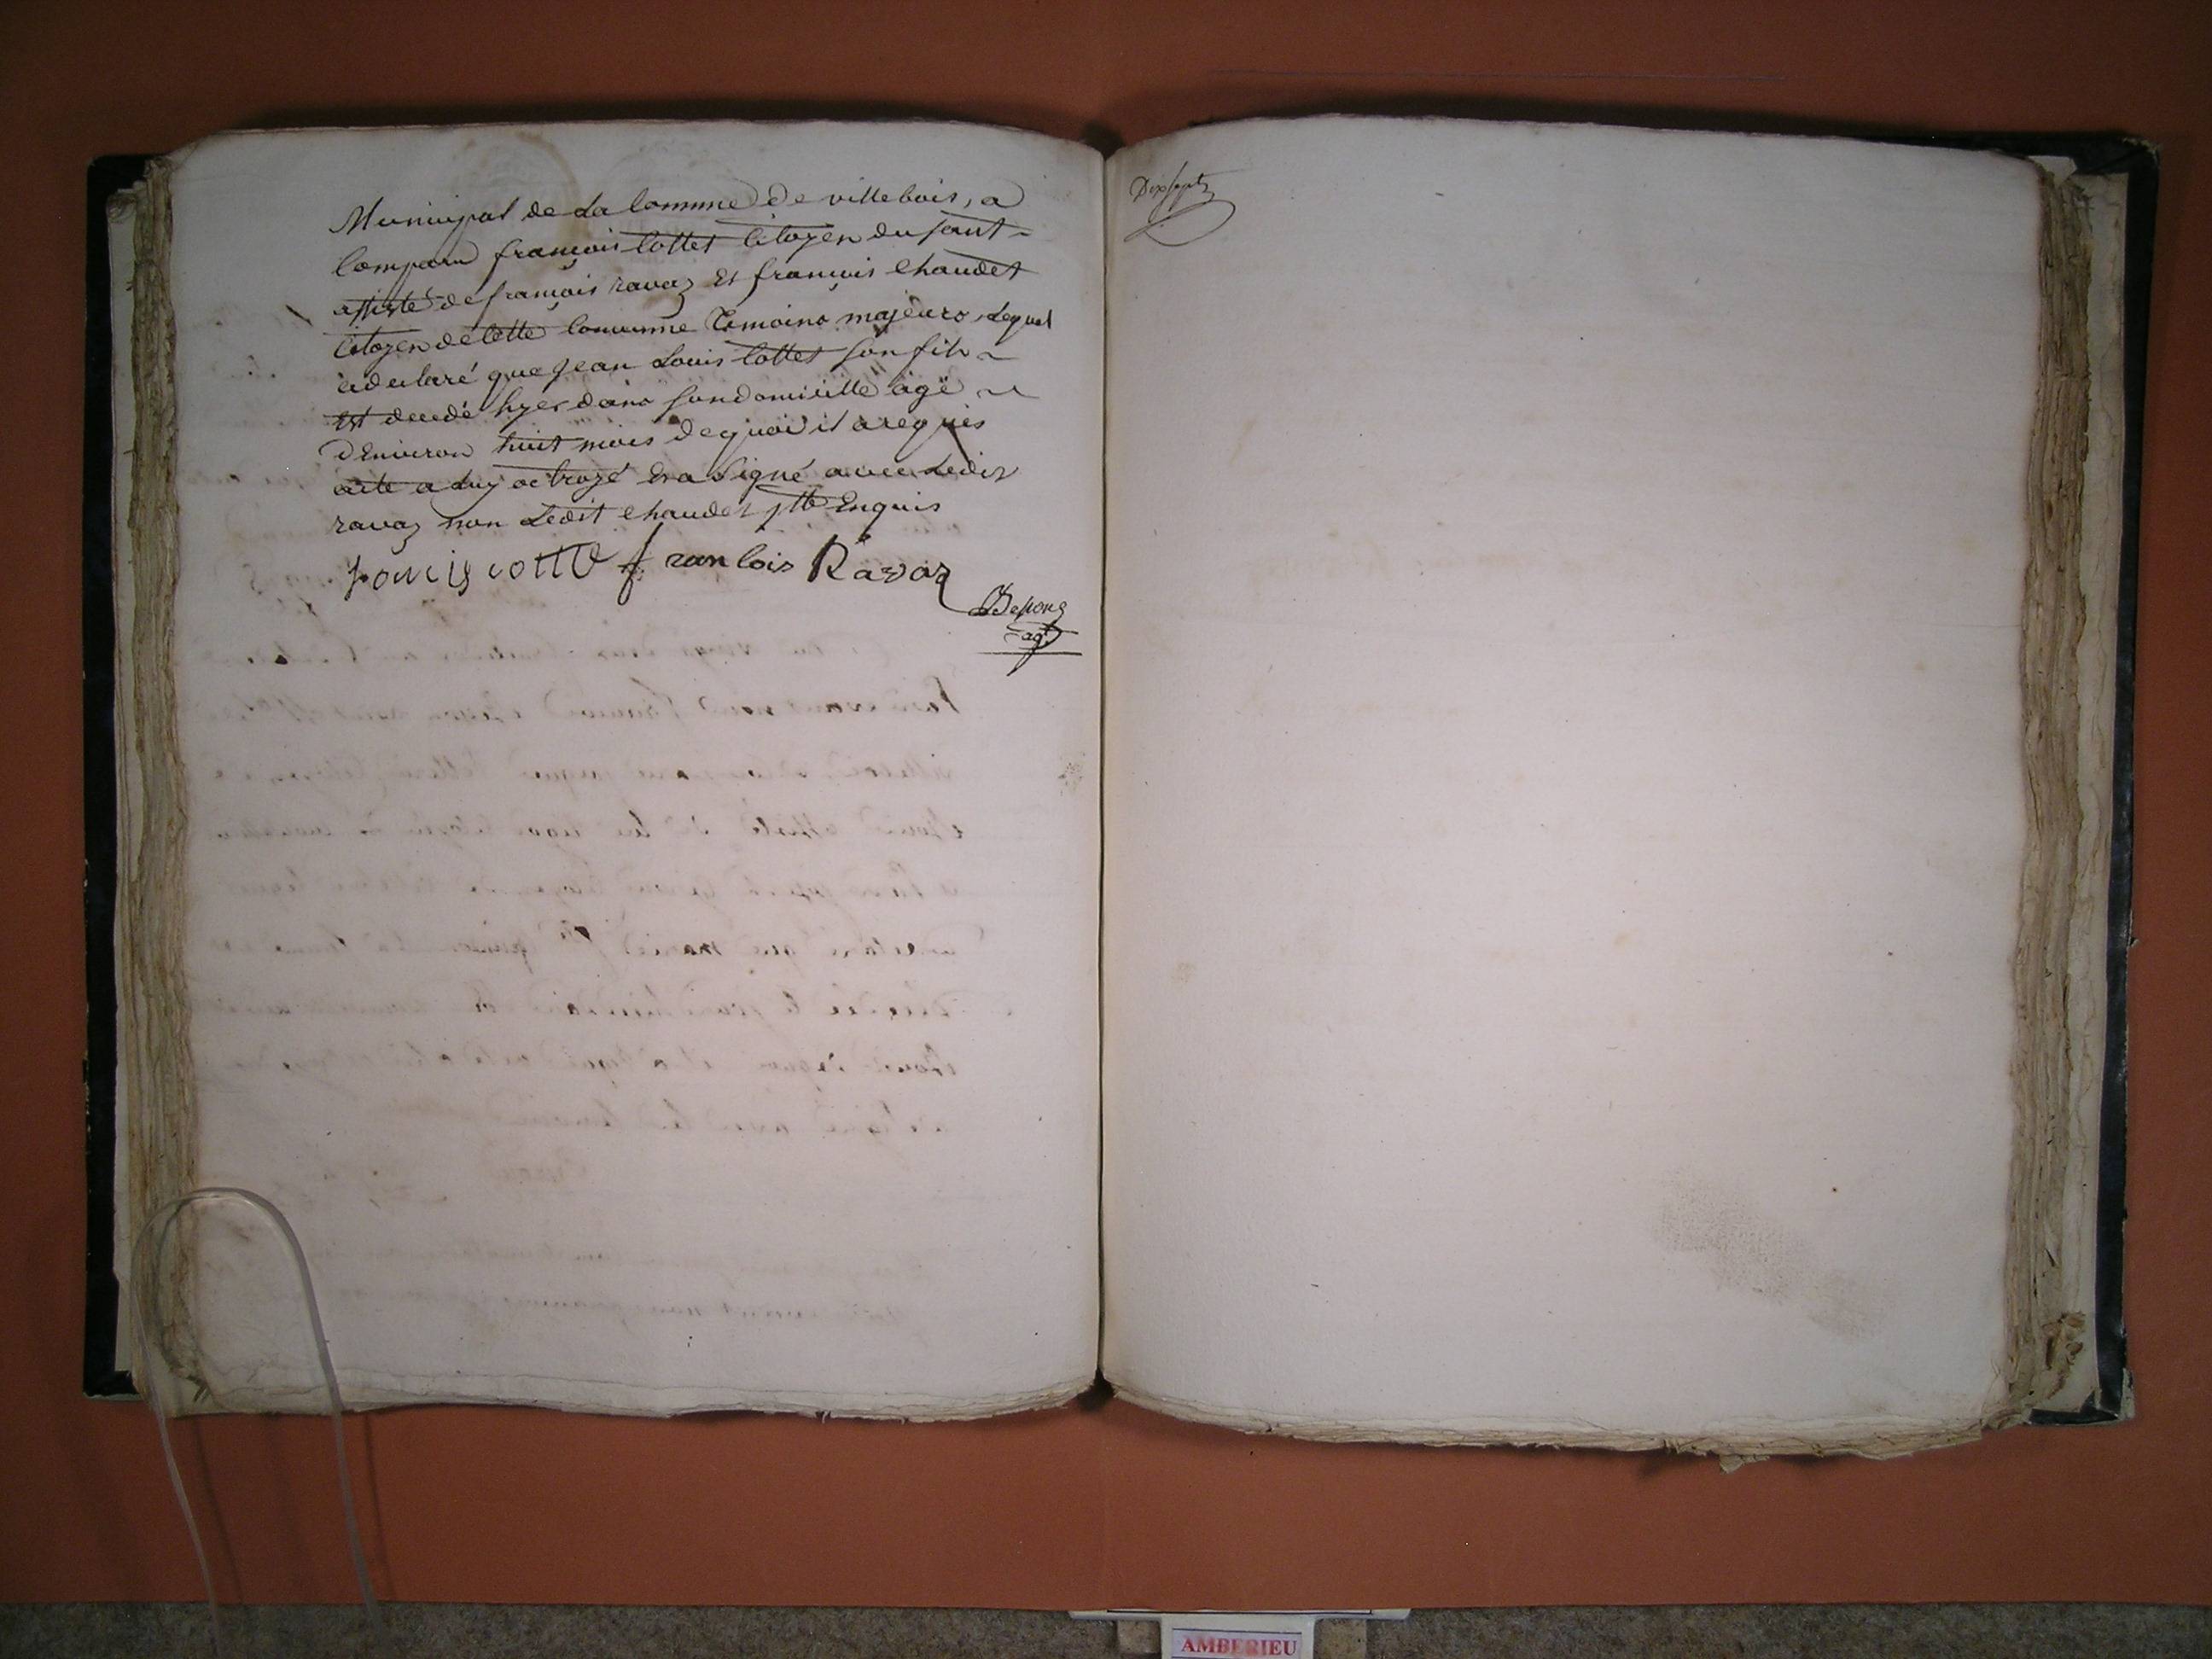 Municipal de La Commune de villebois, a
Comparu françois Cottet Citoyen du saut
assisté de françois ravaz Et françois Chaudet
Citoyen de Cette Commune Temoins majeurs, Lequel
a declaré que Jean Louis Cottet son fils
Est decedé hyer dans son domicille agé
D'Environ huit mois de quoi il a requis
acte a Luy octroyé Et a Signé avec Ledit
ravaz non Ledit Chaudet Enquis
francis cotte francois Ravaz
agt
Dix sept
AMBERIEU